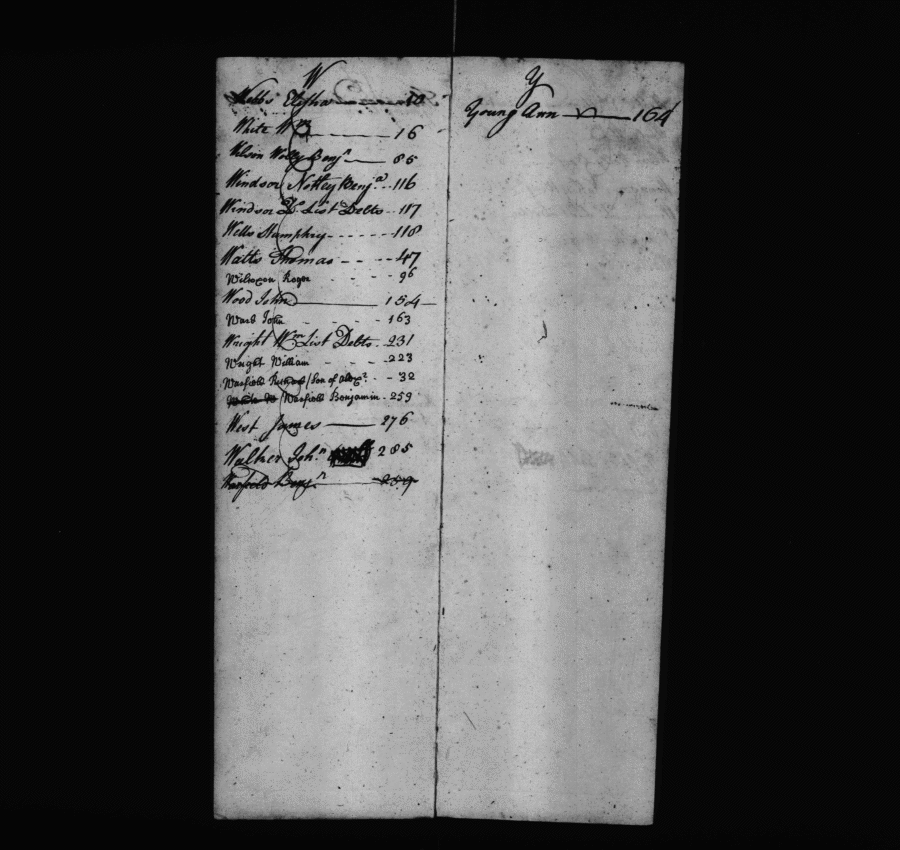 W
Webbs Elisha 10
White Wm 16
Benjn 85
Windsor Notley Benja 116
Windsor Do List Debts 117
Wells Humphry 118
Watts Thomas 47
Wilcoxon Roger 96
Wood John 154
Ward John 163
Wright Wm List Debts 231
Wright William 223
Warfield / Son of Alexr 32
Warfield Benjamin 259
West James 276
Walker John 285
Warfield Benjn 259
Y
Young Ann 164